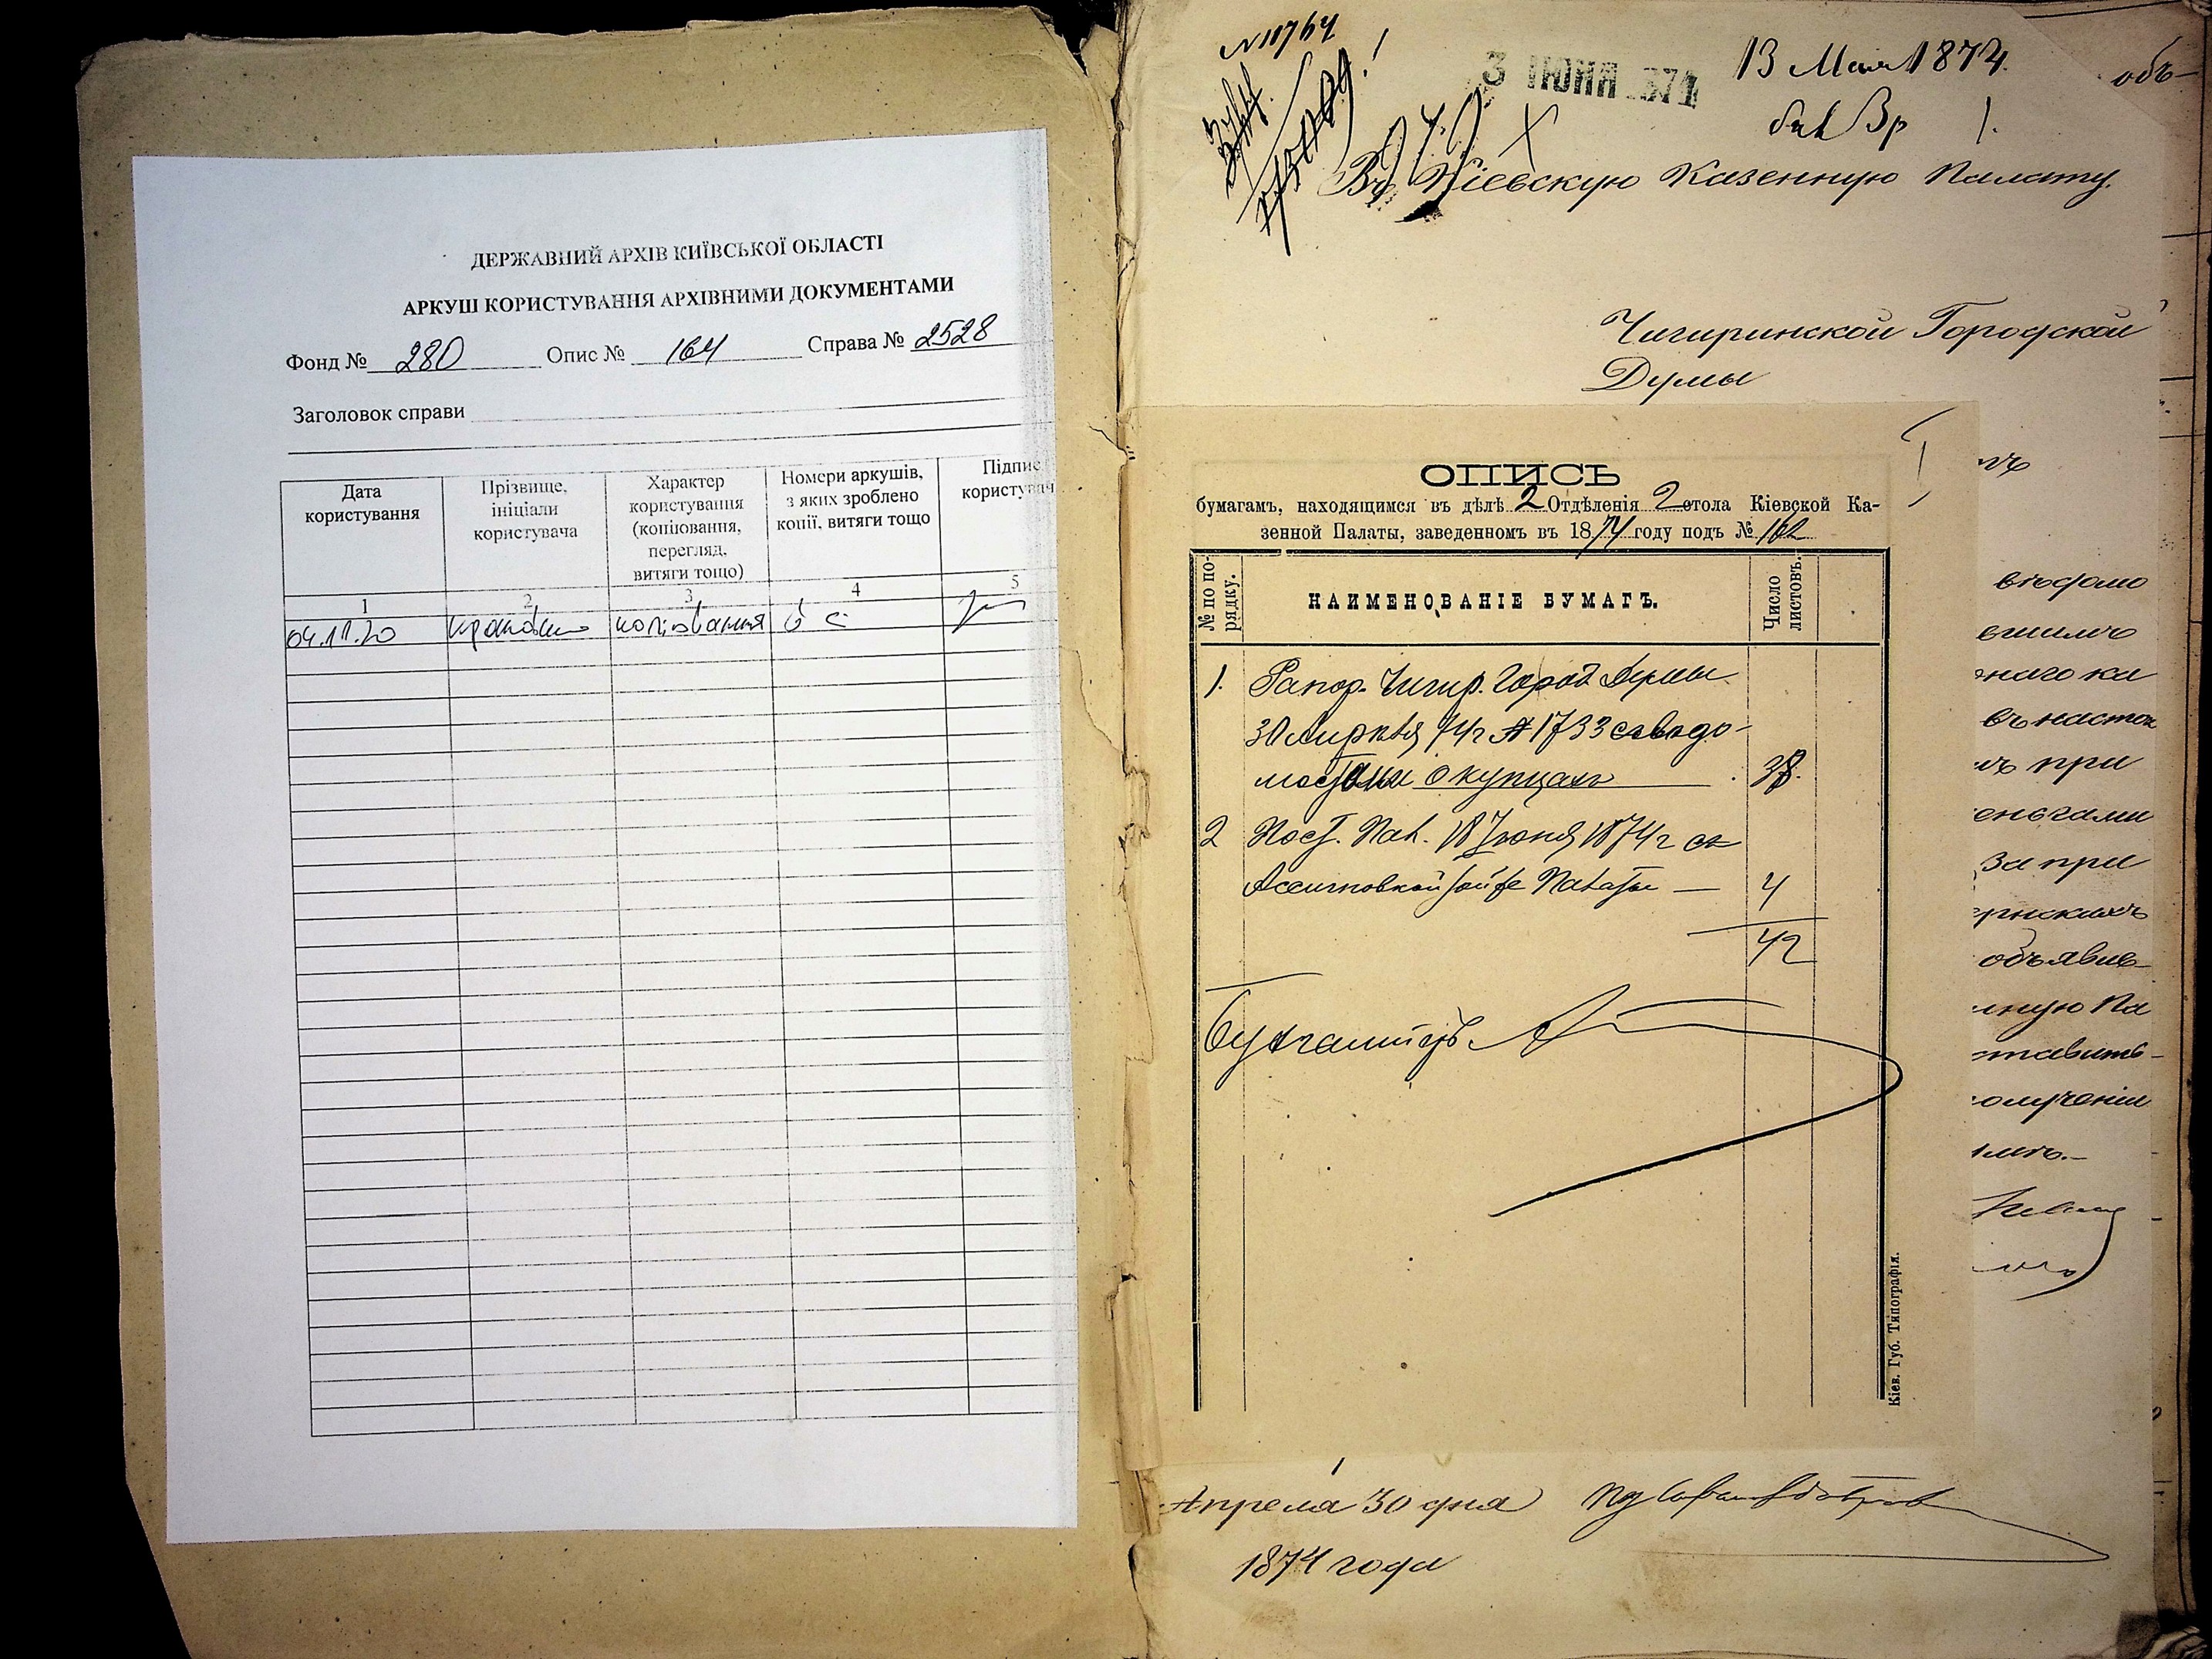 ДЕРЖАВНИЙ АРХІВ КИЇВСЬКОЇ ОБЛАСТІ
АРКУШ КОРИСТУВАННЯ АРХІВНИМИ ДОКУМЕНТАМИ
Фонд № 280 Опис № 164 Справа № 2528
Заголовок справи
Дата користування
Прізвище, ініціали користувача
Характер користування (копіювання, перегляд, витяги тощо)
Номери аркушів, з яких зроблено копії, витяги тощо
Підпис користувач
1 2 3 4 5
04.11.20 копіювання
N 11764
3 ИЮНЯ 874
13 Мая 1874
объ-
1.
Въ Кіевскую Казенную Палату.
Чигиринской Городской
Думы
ОПИСЬ
бумагамъ, находящимся въ дѣлѣ 2 Отдѣленія 2 стола Кіевской Ка-
зенной Палаты, заведенномъ въ 1874 году подъ № 162
№ по по-
рядку.
НАИМЕНОВАНІЕ БУМАГЪ.
Число
листовъ.
1. Рапор. Чигир. Город Думы
30 Апрѣля 74 г № 1733 съ ведо-
мостями о купцахъ 38.
2 Пост. Пал. 18 Іюня 1874 г съ
Ассигновкой Палаты — 4
42
Бухгалтеръ
Кіев. Губ. Типографія.
вѣдомо
вшимъ
наго ка
въ насто
при
еньгами
за при
ернскихъ
объявле
нную Па
ставить-
олученіи
Апреля 30 дня
1874 года